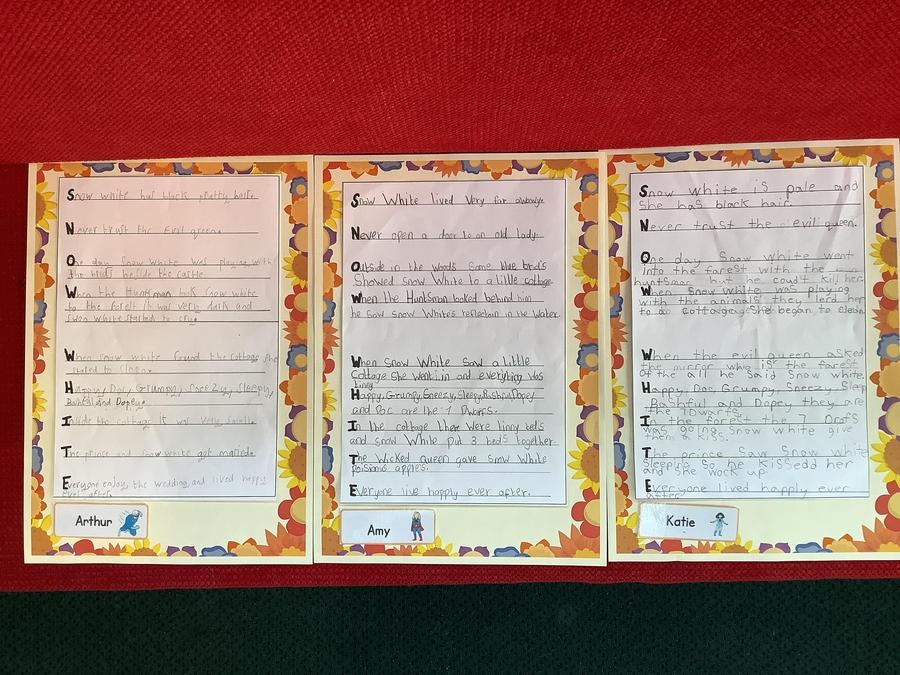 Snow white had black pretty hair.
Never trust the Evil queen.
One day Snow White was playing with
the birds beside the castle.
When the Huntsman took Snow white
to the forest it was very dark and
Snow White started to cry.
When snow white found the cottage she
stated to clean.
Happy, Doc, Grumpy, Sneezy, Sleepy,
Bashful and Dopey.
Inside the cottage it was very small.
The prince and snow white got married.
Everyone enjoy the wedding and lived happy
Ever after.
Arthur
Snow White lived Very far away.
Never open a door to an old lady.
Outside in the woods Some blue birds
Showed snow White to a little cottage.
When the Huntsman looked behind him
he saw snow White's reflection in the Water.
When Snow White Saw a little
Cottage She went in and everything was
tiny.
Happy, Grumpy, Sneezy, Sleepy, Bashful, Dopey
and Doc are the 7 Dworfs.
In the cottage there were tinny bed's
and snow White put 3 bed's together.
The Wicked queen gave Snow White
poisionis apples.
Everyone live happly ever after.
Amy
Snow white is pale and
She has black hair.
Never trust the evil queen.
One day Snow White went
into the forest with the
huntsman but he could't kill her.
When Snow white was playing
with the animals they lerd her
to a Cottage. She began to clean
When the evil queen asked
the mirror who is the farest
of the all he Said Snow white.
Happy, Doc, Grumpy, Sneezy, Sleep
Bashful and Dopey they are
the 7 Dwarfs.
In the forest the 7 Drafs
was going Snow white give
them a kiss.
The prince Saw Snow white
Sleeping So he Kissedd her
and She wock up.
Everyone lived happily ever
after.
Katie